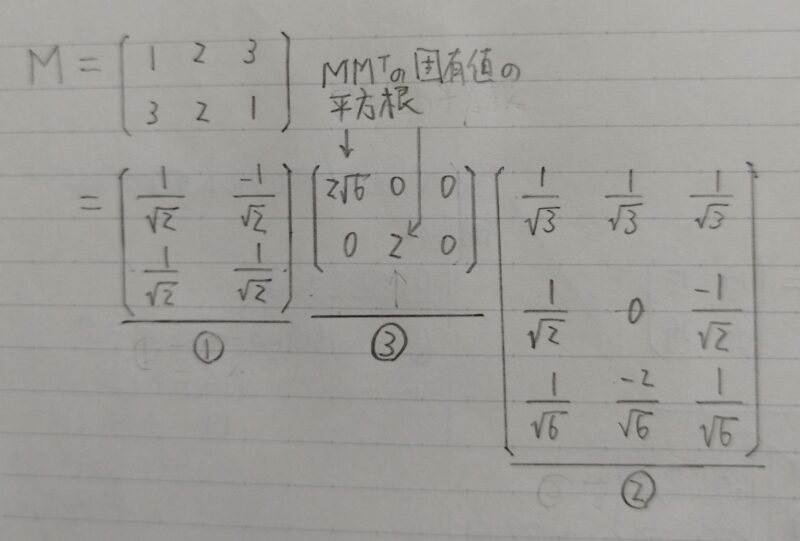 M = [ 1 2 3
3 2 1 ]
MMᵀの固有値の
平方根
↓
= [ 1/√2 -1/√2
1/√2 1/√2 ]
[ 2√6 0 0
0 2 0 ]
[ 1/√3 1/√3 1/√3
1/√2 0 -1/√2
1/√6 -2/√6 1/√6 ]
① ③ ②